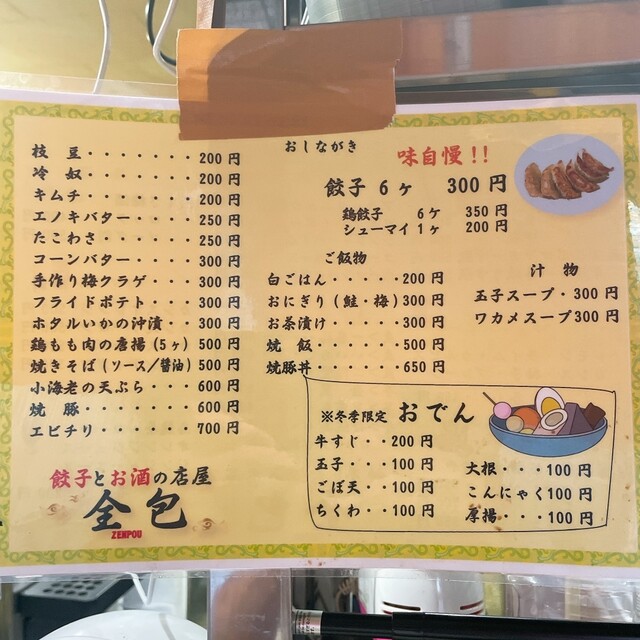 おしながき
枝豆・・・・・・・200円
冷奴・・・・・・・200円
キムチ・・・・・・200円
エノキバター・・・・250円
たこわさ・・・・・250円
コーンバター・・・・300円
手作り梅クラゲ・・・300円
フライドポテト・・・300円
ホタルいかの沖漬・・300円
鶏もも肉の唐揚(5ヶ)500円
焼きそば(ソース/醤油)500円
小海老の天ぷら・・・600円
焼豚・・・・・・・600円
エビチリ・・・・・700円
餃子とお酒の店屋
全包
ZENPOU
味自慢!!
餃子 6ヶ 300円
鶏餃子 6ヶ 350円
シューマイ1ヶ 200円
ご飯物
白ごはん・・・・・200円
おにぎり(鮭・梅)300円
お茶漬け・・・・・300円
焼飯・・・・・・500円
焼豚丼・・・・・・650円
汁物
玉子スープ・300円
ワカメスープ300円
※冬季限定 おでん
牛すじ・・200円
玉子・・・100円
ごぼ天・・100円
ちくわ・・100円
大根・・・100円
こんにゃく100円
厚揚・・・100円